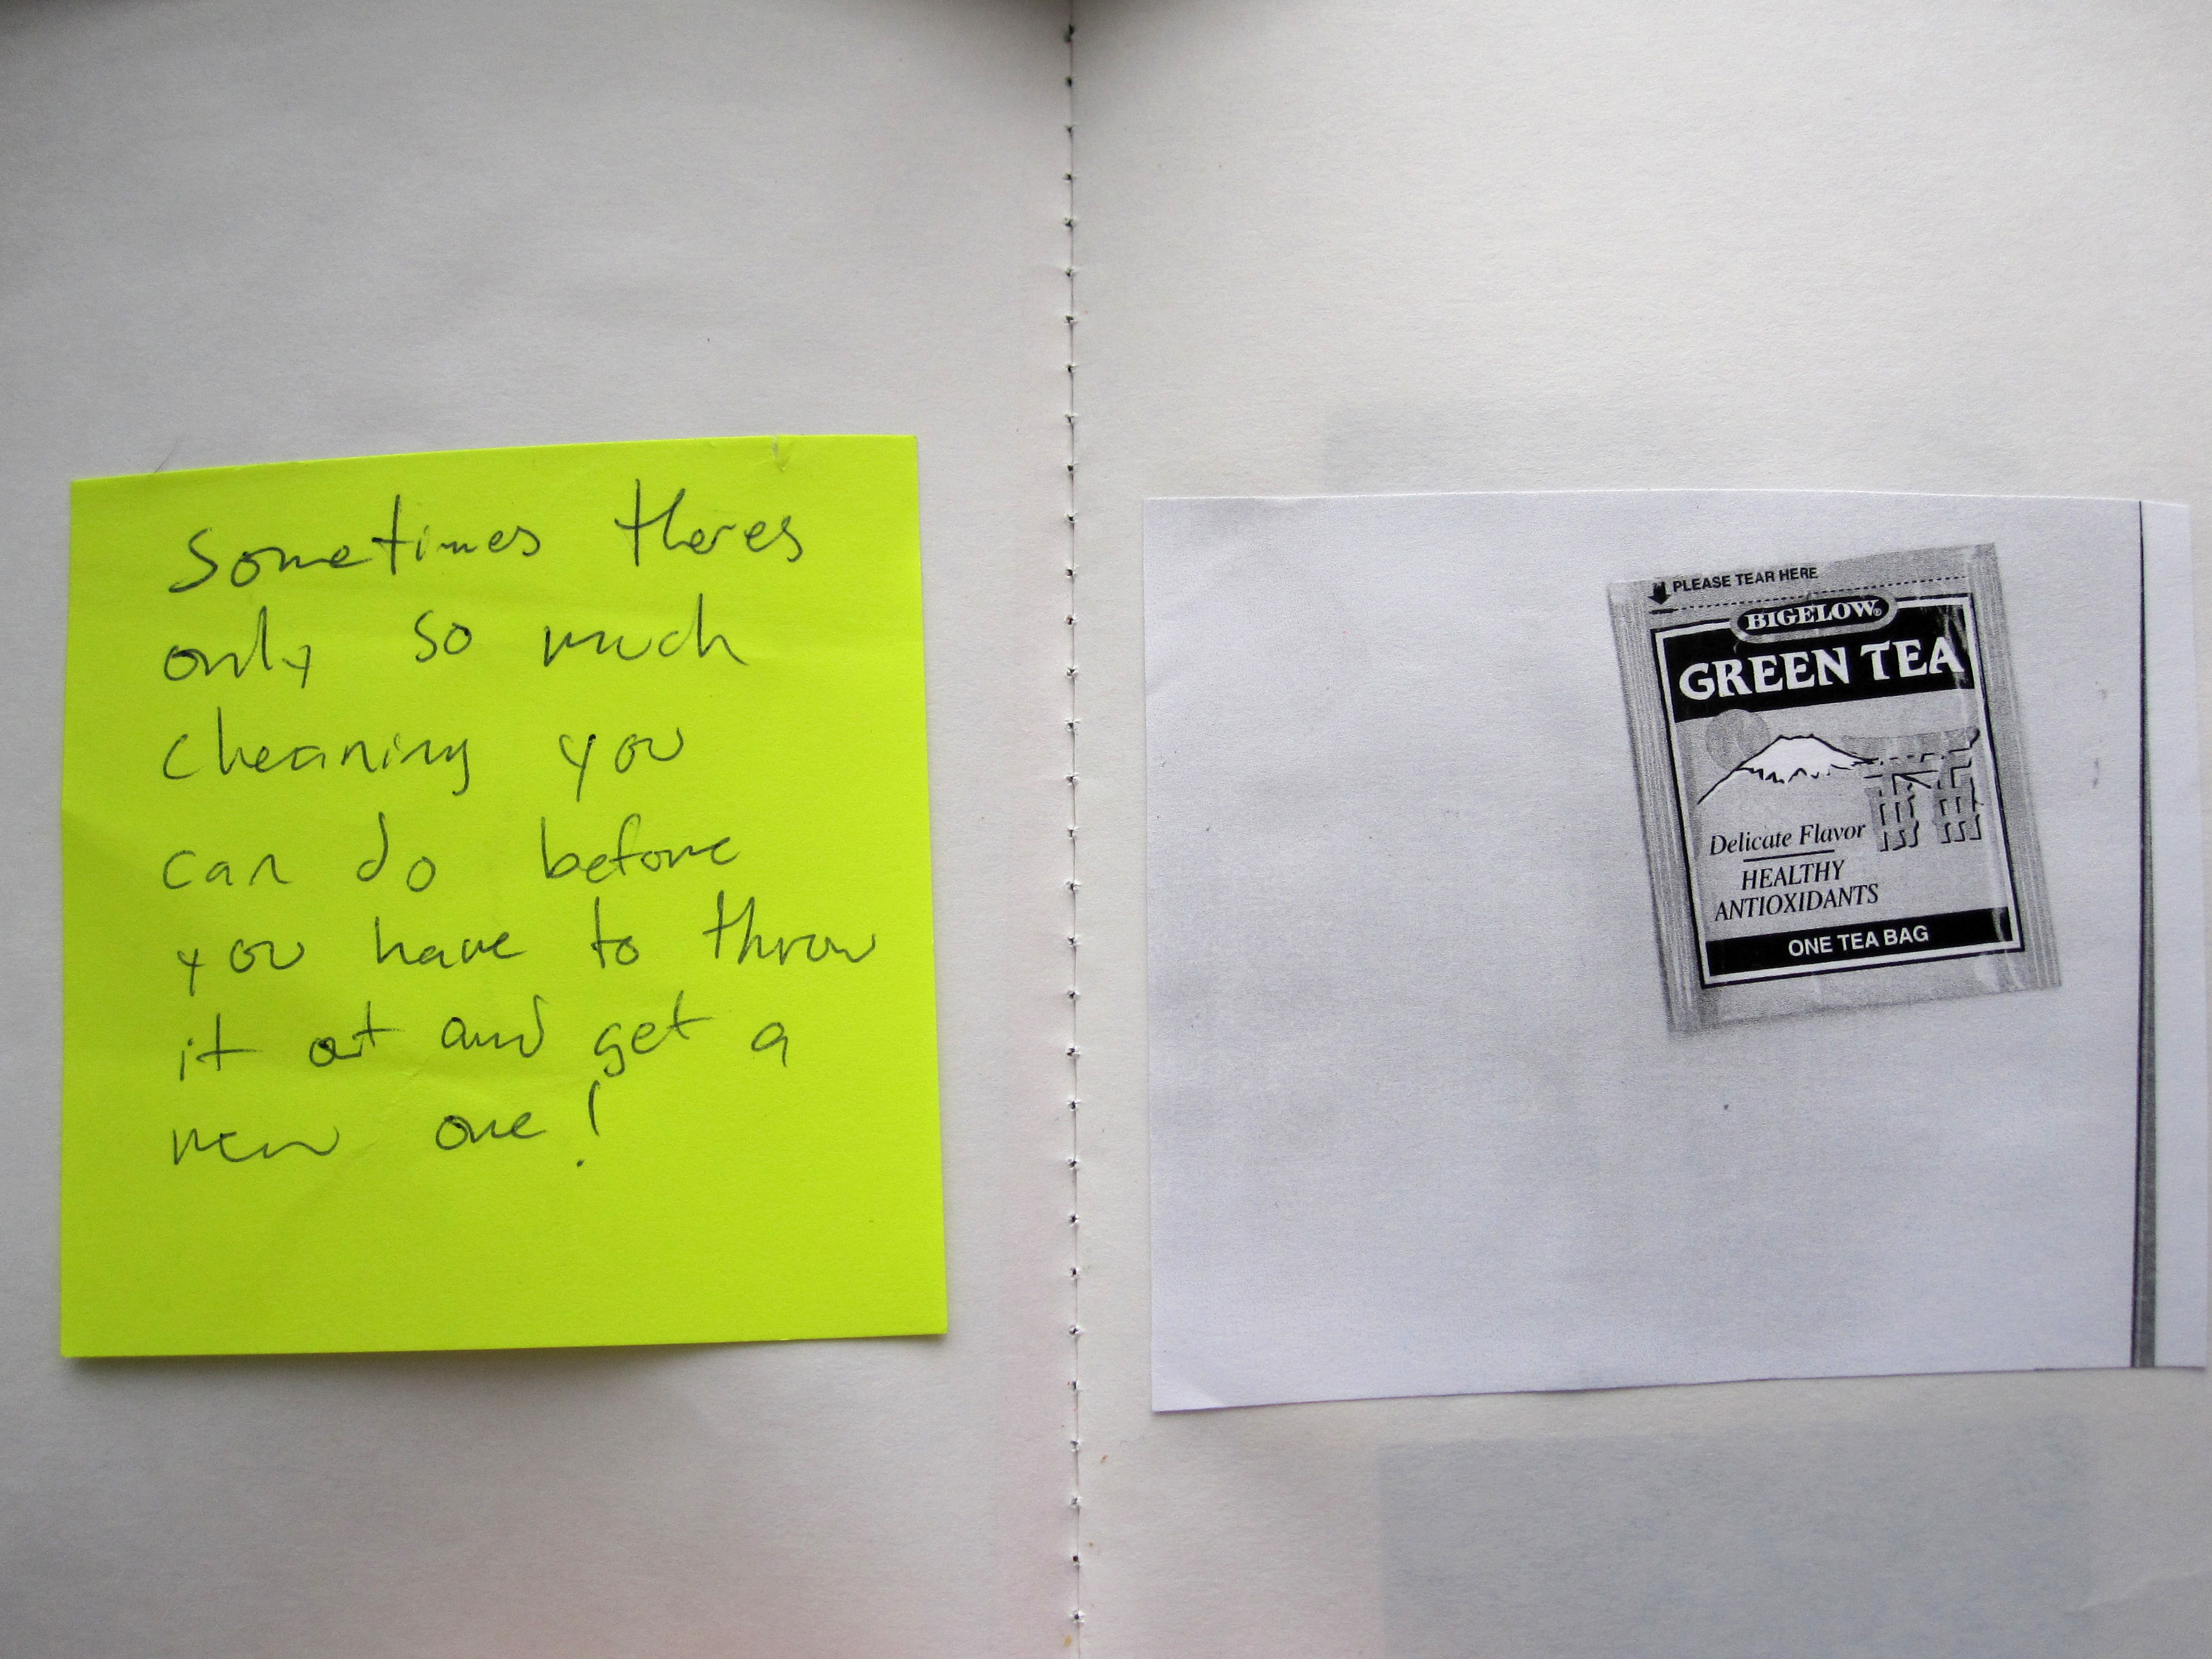 Sometimes theres
only so much
cleaning you
can do before
you have to throw
it out and get a
new one!
PLEASE TEAR HERE
BIGELOW®
GREEN TEA
Delicate Flavor
HEALTHY
ANTIOXIDANTS
ONE TEA BAG